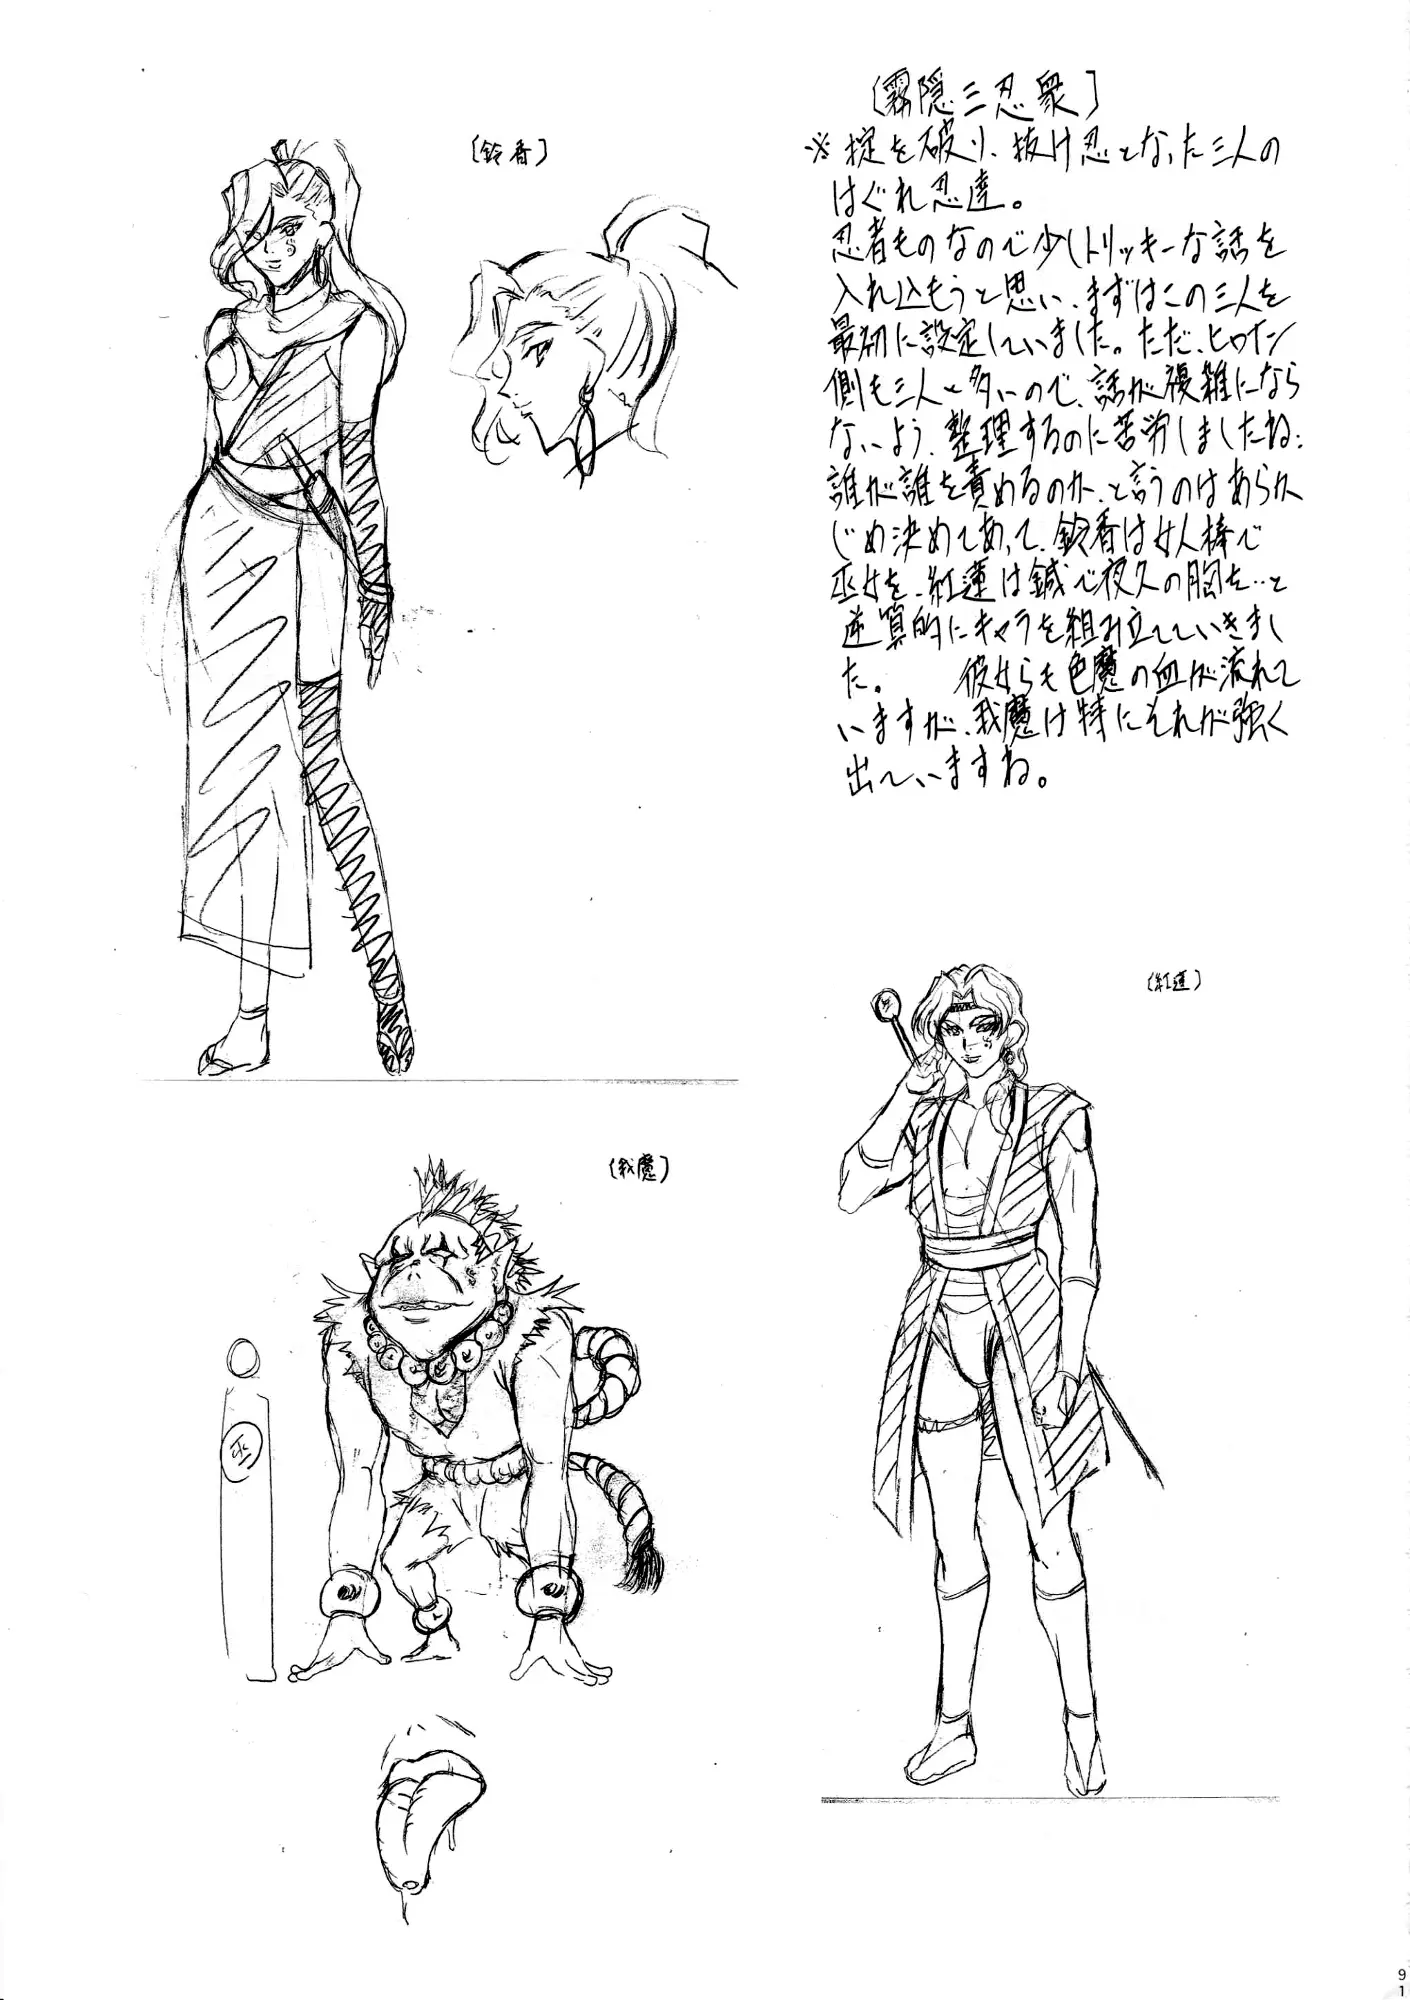 〔霧隠三忍衆〕
※掟を破り、抜け忍となった三人の
はぐれ忍達。
忍者ものなので少しトリッキーな話を
入れ込もうと思い、まずはこの三人を
最初に設定していました。ただ、ヒロイン
側も三人と多いので、話が複雑になら
ないよう、整理するのに苦労しましたね…
誰が誰を責めるのか、と言うのはあらか
じめ決めてあって、鈴香は女人棒で
巫女を、紅蓮は鍼で夜久の胸を‥と
逆算的にキャラを組み立てていきまし
た。 彼女らも色魔の血が流れて
いますが、我魔は特にそれが強く
出ていますね。
〔鈴香〕
〔紅蓮〕
〔我魔〕
巫
91